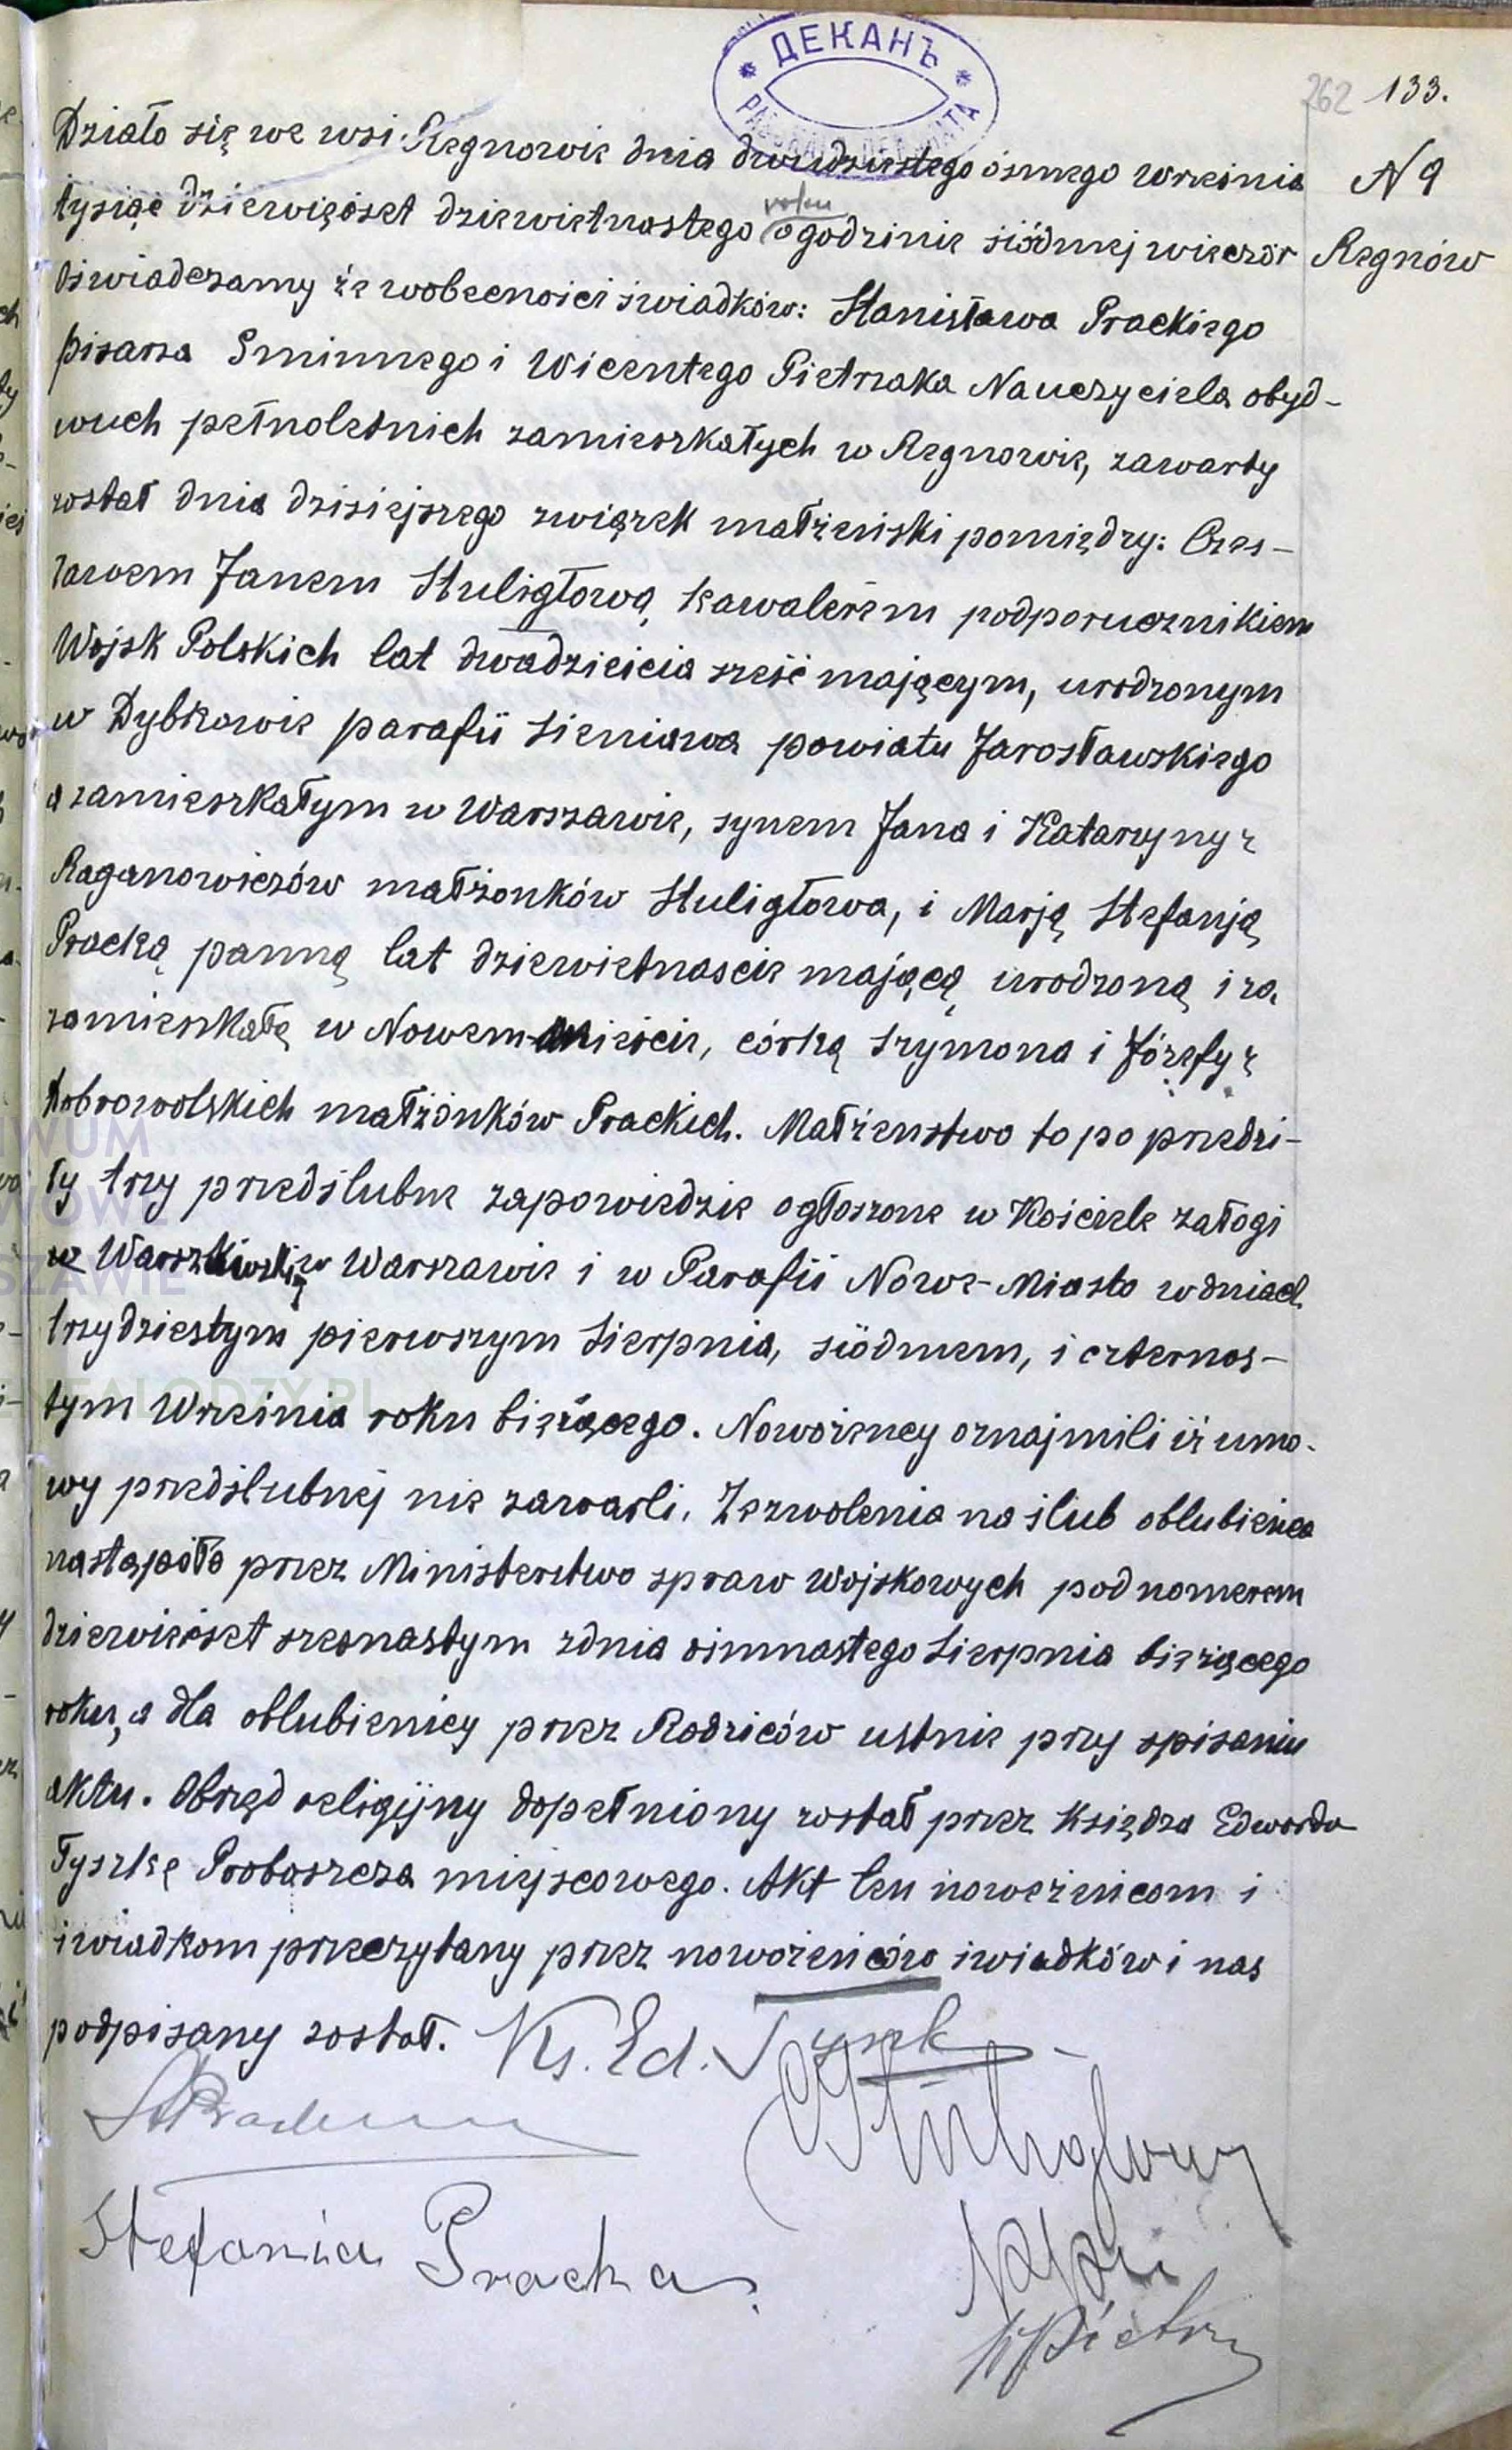 * ДЕКАНЪ *
262 133.
N 9
Regnów
Działo się we wsi Regnowie dnia dwudziestego ósmego września
tysiąc dziewięćset dziewietnastego roku o godzinie siódmej wieczór
Oświadczamy że wobecności świadków: Stanisława Prackiego
pisarza Gminnego i Wicentego Pietrzaka Nauczyciela obyd-
wuch pełnoletnich zamieszkałych w Regnowie, zawarty
został dnia dzisiejszego związek małżeński pomiędzy: Czes-
ławem Janem Stuligłową kawalerem podporucznikiem
Wojsk Polskich lat dwadzieścia sześć mającym, urodzonym
w Dybkowie parafii Sieniawa powiatu Jarosławskiego
a zamieszkałym w Warszawie, synem Jana i Katarzyny z
Raganowiczów małżonków Stuligłowa, i Marją Stefanją
Pracką panną lat dziewietnascie mającą urodzoną i za
zamieszkałą w Nowem-Mieście, córką Szymona i Józefy z
Dobrowolskich małżonków Prackich. Małżenstwo to po przedzi-
ły trzy przedślubne zapowiedzie ogłoszone w Kościele załogi
w Warszawie i w Parafii Nowe-Miasto w dniach
trzydziestym pierwszym Sierpnia, siódmem, i czternas-
tym Września roku bieżącego. Nowożency oznajmili iż umo-
wy przedślubnej nie zawarli. Zezwolenia na ślub oblubieńca
nastąpiło przez Ministerstwo spraw Wojskowych pod nomerem
dziewięćset szesnastym z dnia osmnastego Sierpnia bieżącego
roku, a dla oblubienicy przez Rodziców ustnie przy spisaniu
aktu. Obrzęd religijny dopełniony został przez Księdza Edwarda
Tyszkę Proboszcza miejscowego. Akt ten nowożeńcom i
świadkom przeczytany przez nowożeńców świadków i nas
podpisany został. Ks. Ed. Tyszk
Stefania Pracka